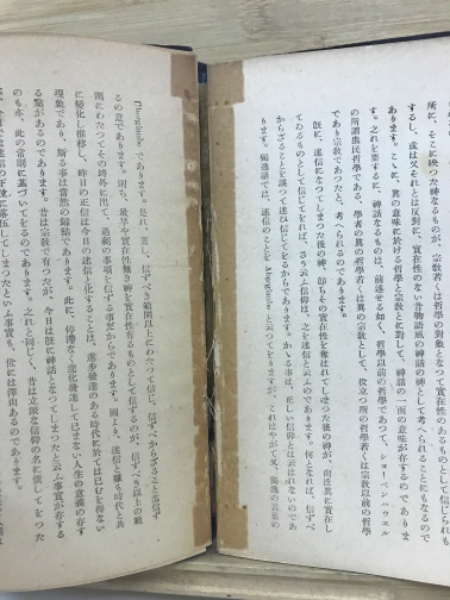 所に、そこに映つた神なるものが、宗教若くは哲學の對象となつて實在性のあるものとして信じられも
するし、或は又それとは反對に、實在性のない昔物語風の神話の神として考へられることにもなるので
あります。こゝに、眞の意味に於ける哲學と宗教とに對して、神話の一面の意味が存するのでありま
す。之れを要するに、神話なるものは、前述せる如く、哲學以前の哲學であつて、ショーペンハウエル
の所謂庶民哲學である、學者の眞の哲學若くは眞の宗教として、役立つ所の哲學若くは宗教以前の哲學
であり宗教であつたと、考へられるのであります。
既に、迷信になつてしまつた後の神が、卽ちその實在性を奪はれてしまつた後の神が、尙ほ眞に實在し
てゐるものとして信じてをれば、さう云ふ信仰は、之を迷信と云ふのであります。何となれば、信ずべ
からざることを誤つて迷ひ信じてをるからであります。かゝる事は、正しい信仰とは云はれないのであ
ります。獨逸語では、迷信のことを Aberglaube と云つてをりますが、これはやがて又、獨逸の言葉の
Überglaube であります。是れ、蓋し、信ずべき範圍以上にわたつて信じ、信ずべからざることを信ず
るの意であります。則ち、最早や實在性無き神を實在性有るものとして信ずるのが、信ずべき以上の範
圍にわたつてその埒外に出て、過剩の事項を信ずる事だからであります。固より、迷信と雖も時代と共
に變化し推移し、昨日の正信は今日の迷信と化することは、進步發達のある時代に於ては已むを得ない
現象であり、斯る事は當然の歸結であります。此に、停滯なく進化發達して已まない人生の意義の存す
る點があるのであります。昔は宗教で有つたが、今日は既に神話となつてしまつたと云ふ事實が存する
のも亦、此の常則に基づいてをるのであります。之れと同じく、昔は立派な信仰の名に價してをつた
迷信の下陸に落伍してしまつたといふ事實も、倶には澤山あるのであります。